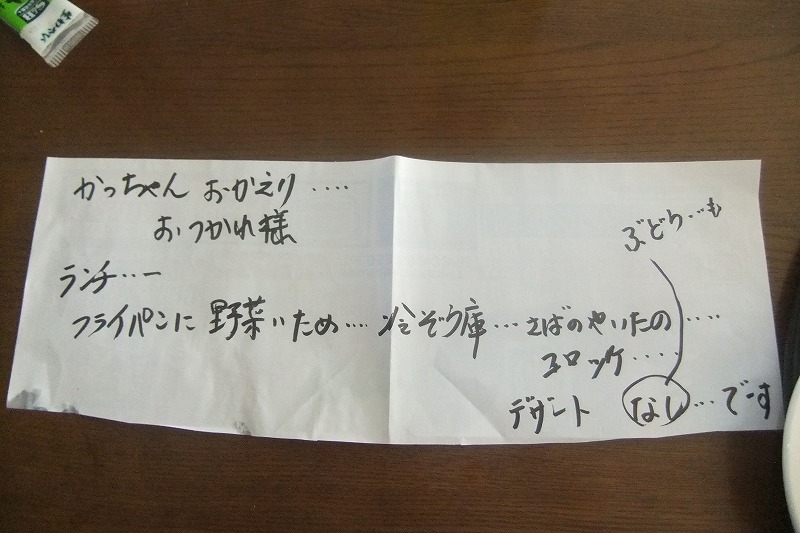 かっちゃん おかえり ‥‥
おつかれ様
ぶどう‥も
ランチ‥ー
フライパンに 野菜いため‥‥ 冷ぞう庫‥‥ さばのやいたの ‥‥
コロッケ ‥‥
デザート なし‥‥でーす